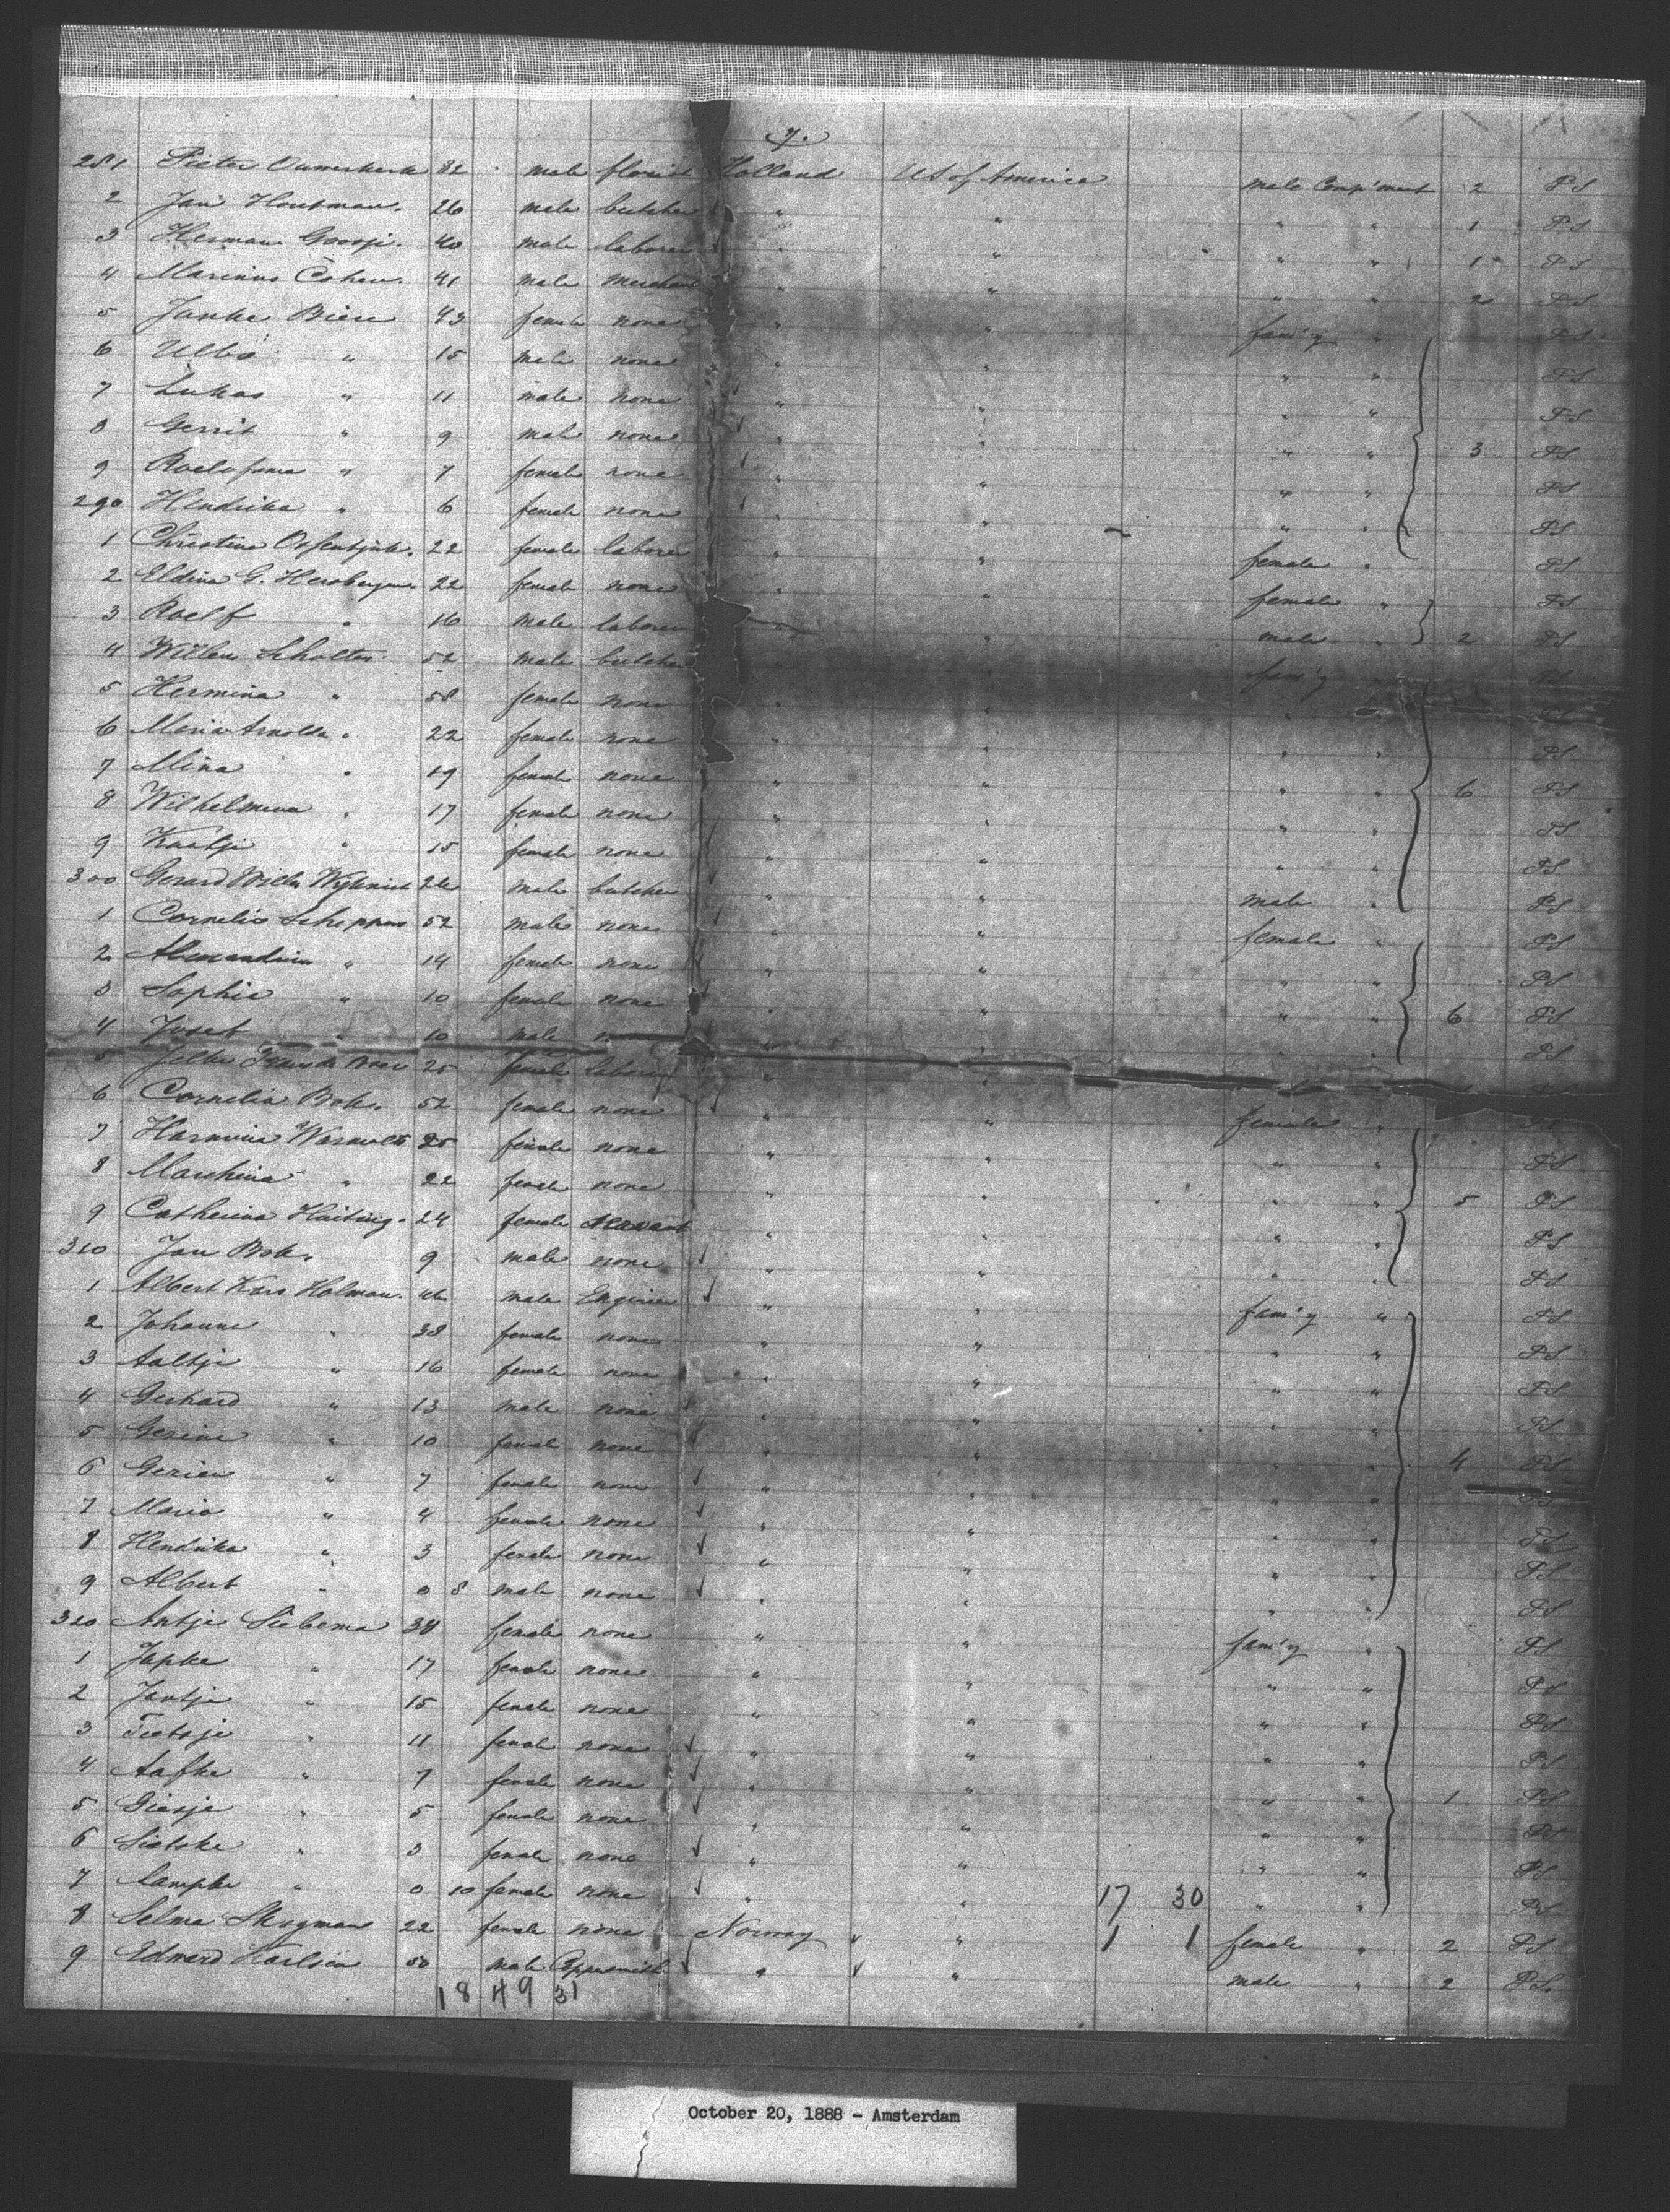 7.
281 Pieter 32 male florist Holland US of America male Comp'ment 2 PS
2 Jan Houtman. 26 male butcher " " " " 1 PS
3 Herman 40 male laborer " " " " 1 PS
4 Marinus Cohen. 41 male merchant " " " " 2 PS
5 Janke Biere 43 female none " " fam'y " PS
6 " 15 male none " " " " PS
7 Lukas " 11 male none " " " " PS
8 Gerrit " 9 male none " " " " 3 PS
9 " 7 female none " " " " PS
290 Hendrika " 6 female none " " " " PS
1 Christina 22 female laborer " " female " PS
2 Eldina G. 22 female none " " female " PS
3 Roelf " 16 male laborer " male " 2 PS
4 Willem Scholten 52 male butcher " " fam'y PS
5 Hermina " 58 female none " " " "
6 Maria Arnolda " 22 female none " " " " PS
7 Mina " 19 female none " " " " 6 PS
8 Wilhelmina " 17 female none " " " " PS
9 Kaatje " 15 female none " " " " PS
300 Gerard Willem 26 male butcher " " male " PS
1 Cornelis Scheppers 52 male none " " female " PS
2 " 14 female none " " " " PS
3 Sophie " 10 female none " " " " 6 PS
4 Josef " 10 male " " " " PS
5 Jelke 25 female laborer " "
6 Cornelia Bok. 52 female none " " female "
7 Harmina Warmolts 25 female none " " " " PS
8 " 22 female none " " " " 5 PS
9 Catherina Huiting. 24 female servant " " " " PS
310 Jan Bok. 9 male none " " " " PS
1 Albert Kars Holman. 46 male Engineer " " fam'y " PS
2 Johanna " 38 female none " " " " PS
3 Aaltje " 16 female none " " " " PS
4 Gerhard " 13 male none " " " " PS
5 Gezina " 10 female none " " " " 4 PS
6 " 7 female none " " " " PS
7 Maria " 4 female none " " " " PS
8 Hendrika " 3 female none " " " " PS
9 Albert " 0 8 male none " " " " PS
320 Antje Siebema 38 female none " " fam'y " PS
1 Japke " 17 female none " " " " PS
2 Jantje " 15 female none " " " " PS
3 Tietsje " 11 female none " " " " PS
4 Aafke " 7 female none " " " " 1 PS
5 " 5 female none " " " " PS
6 Sietske " 3 female none " " " " PS
7 Lampke " 0 10 female none " " 17 30 " " PS
8 Selma 22 female none Norway " 1 1 female " 2 PS
9 Edward Karlsen 50 male " " male " 2 PS.
18 49 31
October 20, 1888 - Amsterdam